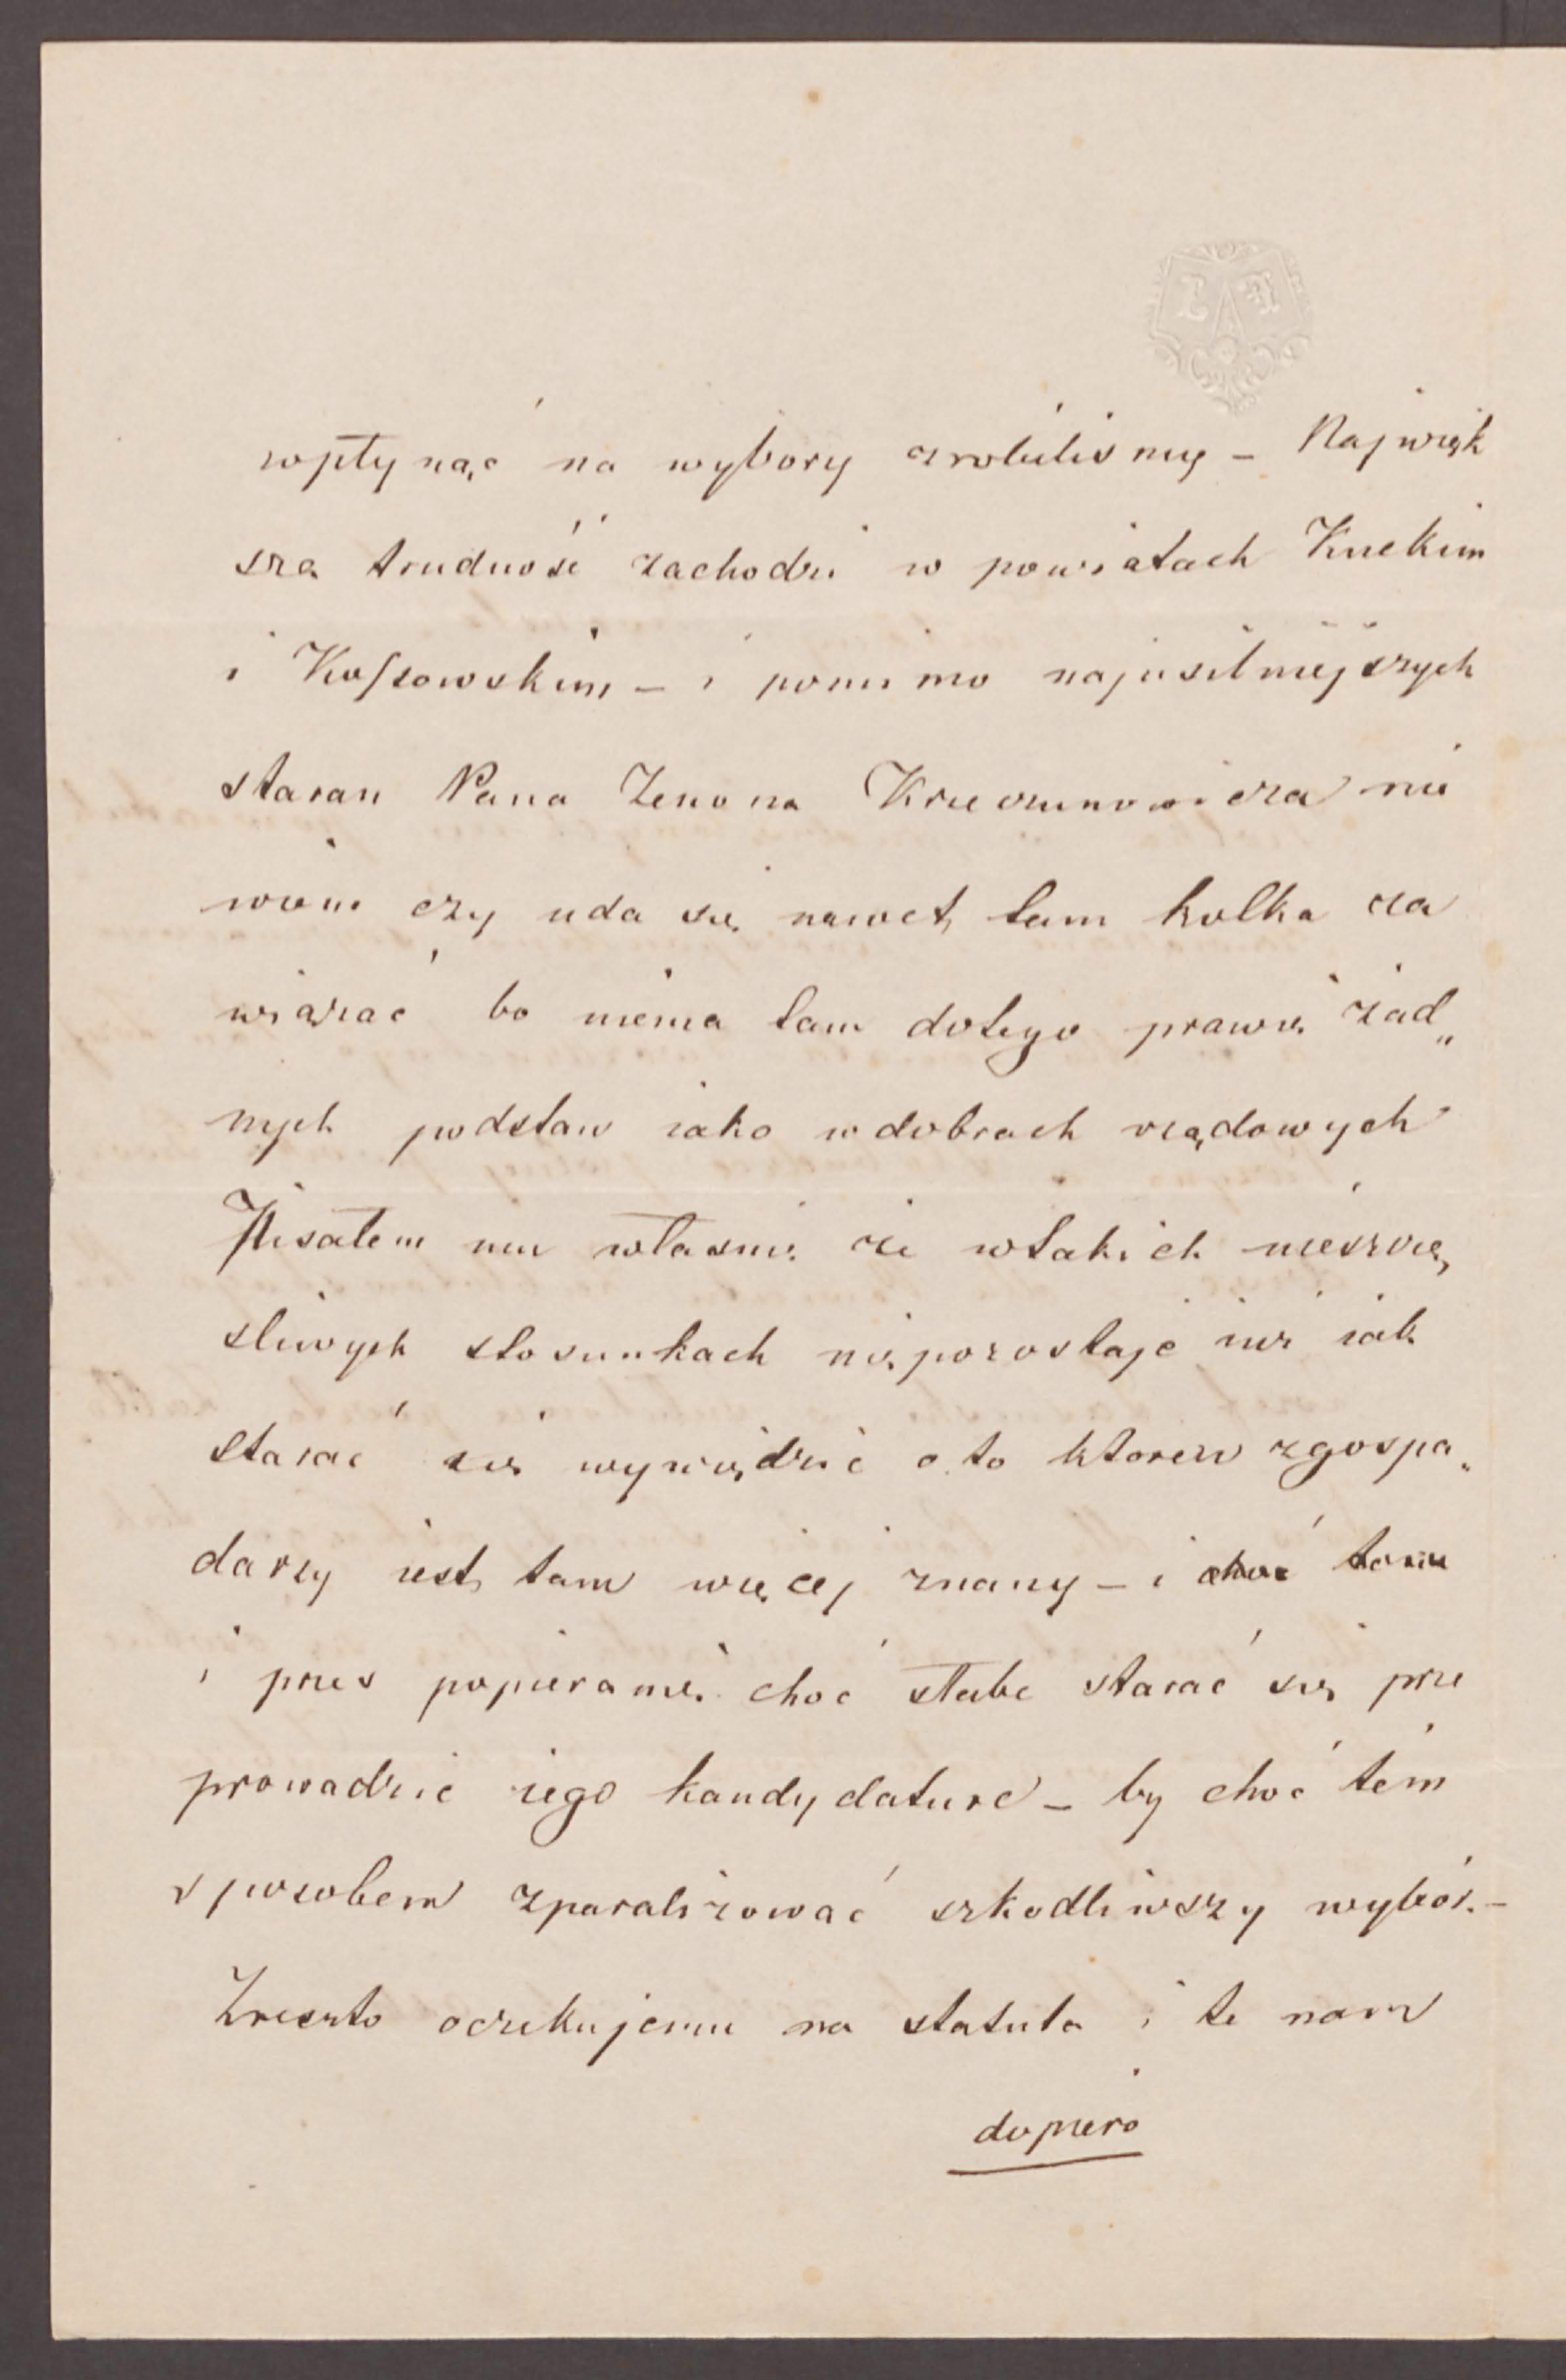 wpłynąć na wybory zrobiliśmy – Najwięk
sza trudność zachodzi w powiatach Kuckim
i Kossowskim – i pomimo najusilniejszych
staran Pana Zenona Krzeczunowicza nie
wiem czy uda się nawet tam kolka za
wiązać bo niema tam dotego prawie żad„
nych podstaw iako w dobrach rządowych
Pisałem mu własnie że wtakich nieszczę,
sliwych stosunkach niepozostaje iuż iak
starać się wywiedzić o to ktoren zgospa„
darzy iest tam więcej znany – i choć
i przes popieranie choć słabe starać się prze
prowadzić iego kandydature – by choć tém
sposobem zparaliżować szkodliwszy wybór. –
Zreszto oczekujemu na statuta i te nam
dopiero